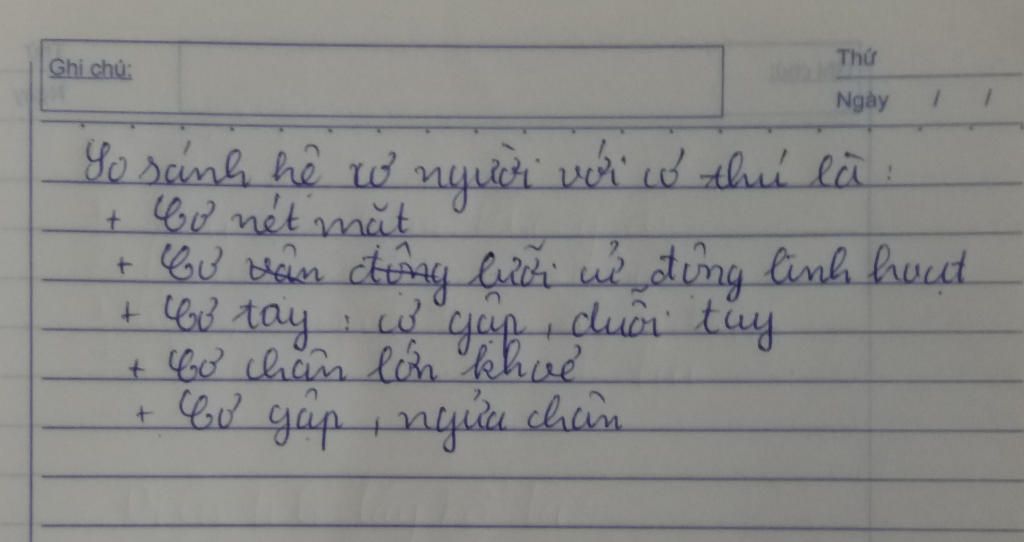 Ghi chú:
Thứ
Ngày / /
So sánh hệ cơ người với cơ thú là:
+ Cơ nét mặt
+ Cơ vận động lưỡi cử động linh hoạt
+ Cơ tay : cơ gập, duỗi tay
+ Cơ chân lớn khoẻ
+ Cơ gập, ngửa chân